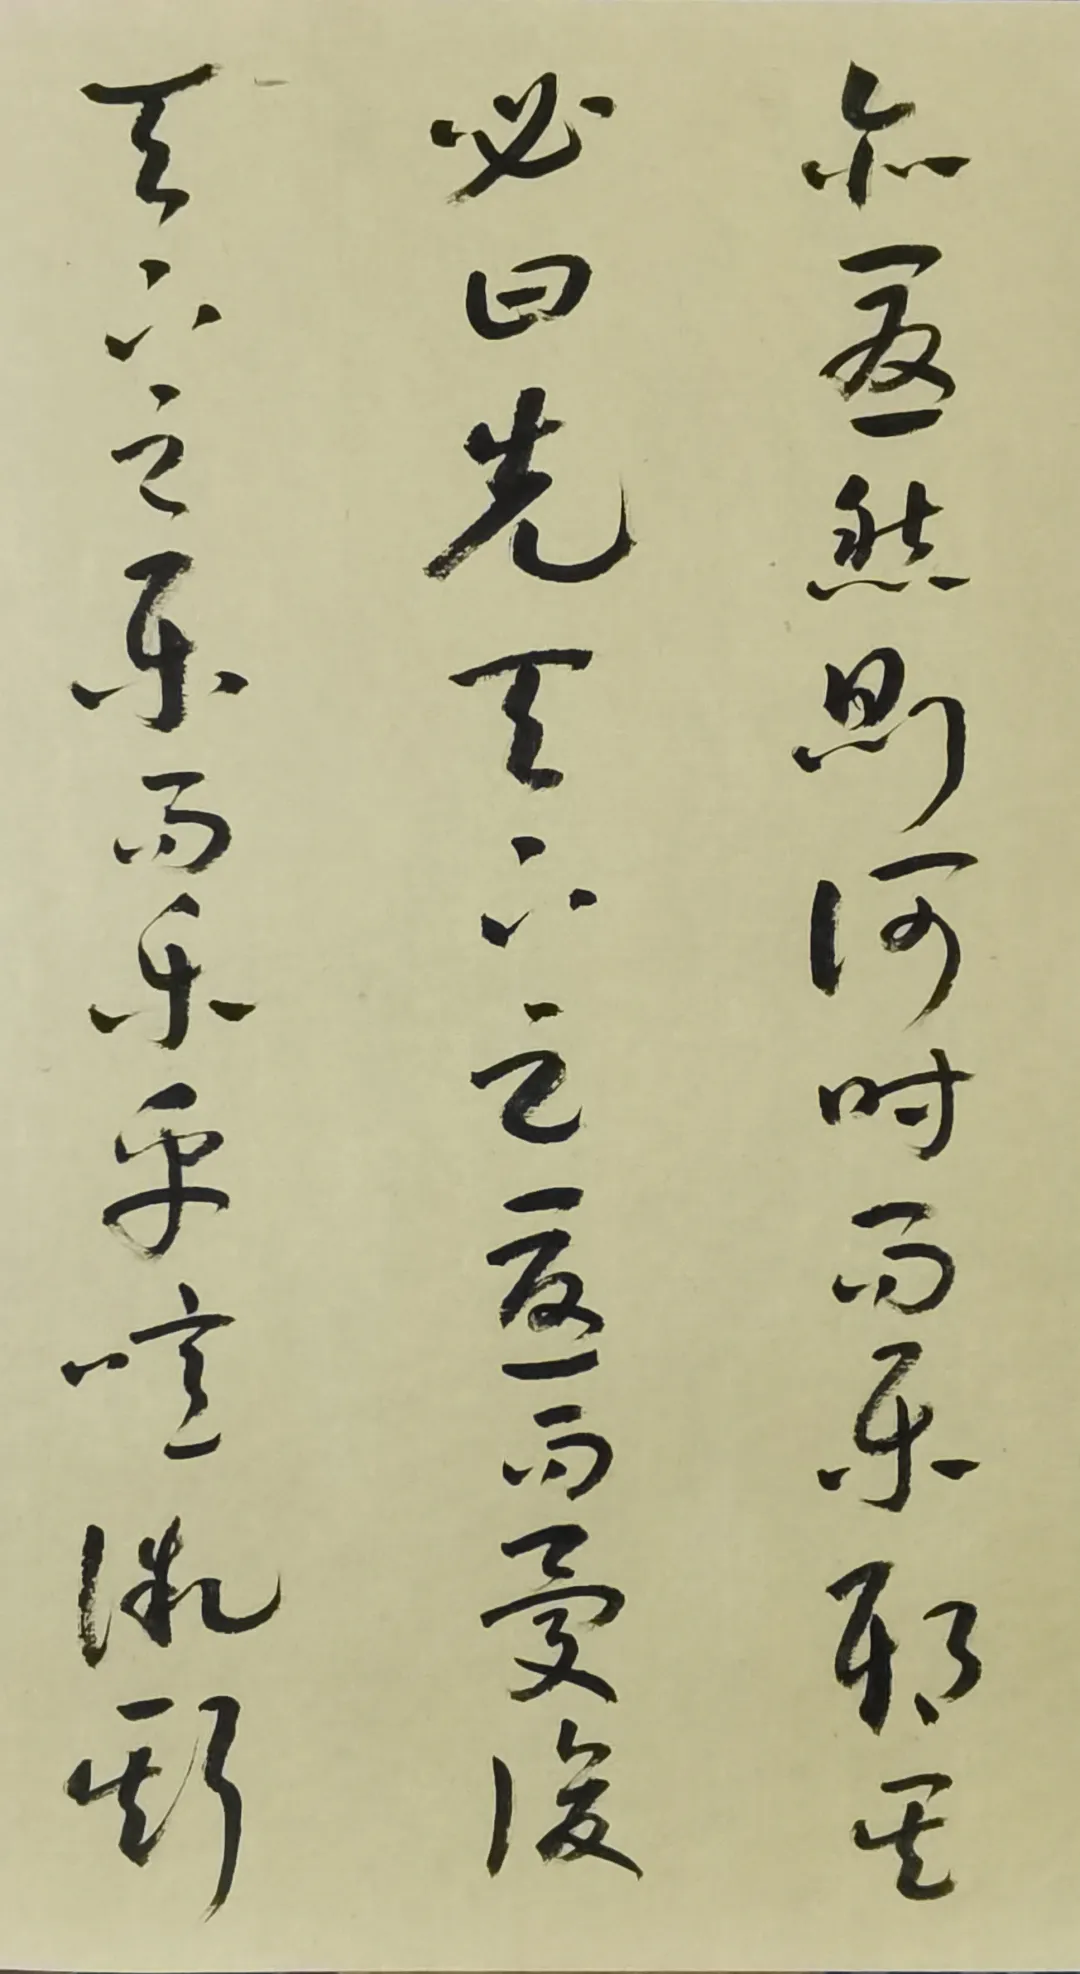 亦憂然則何時而樂耶其
必曰先天下之憂而憂後
天下之樂而樂乎噫微斯